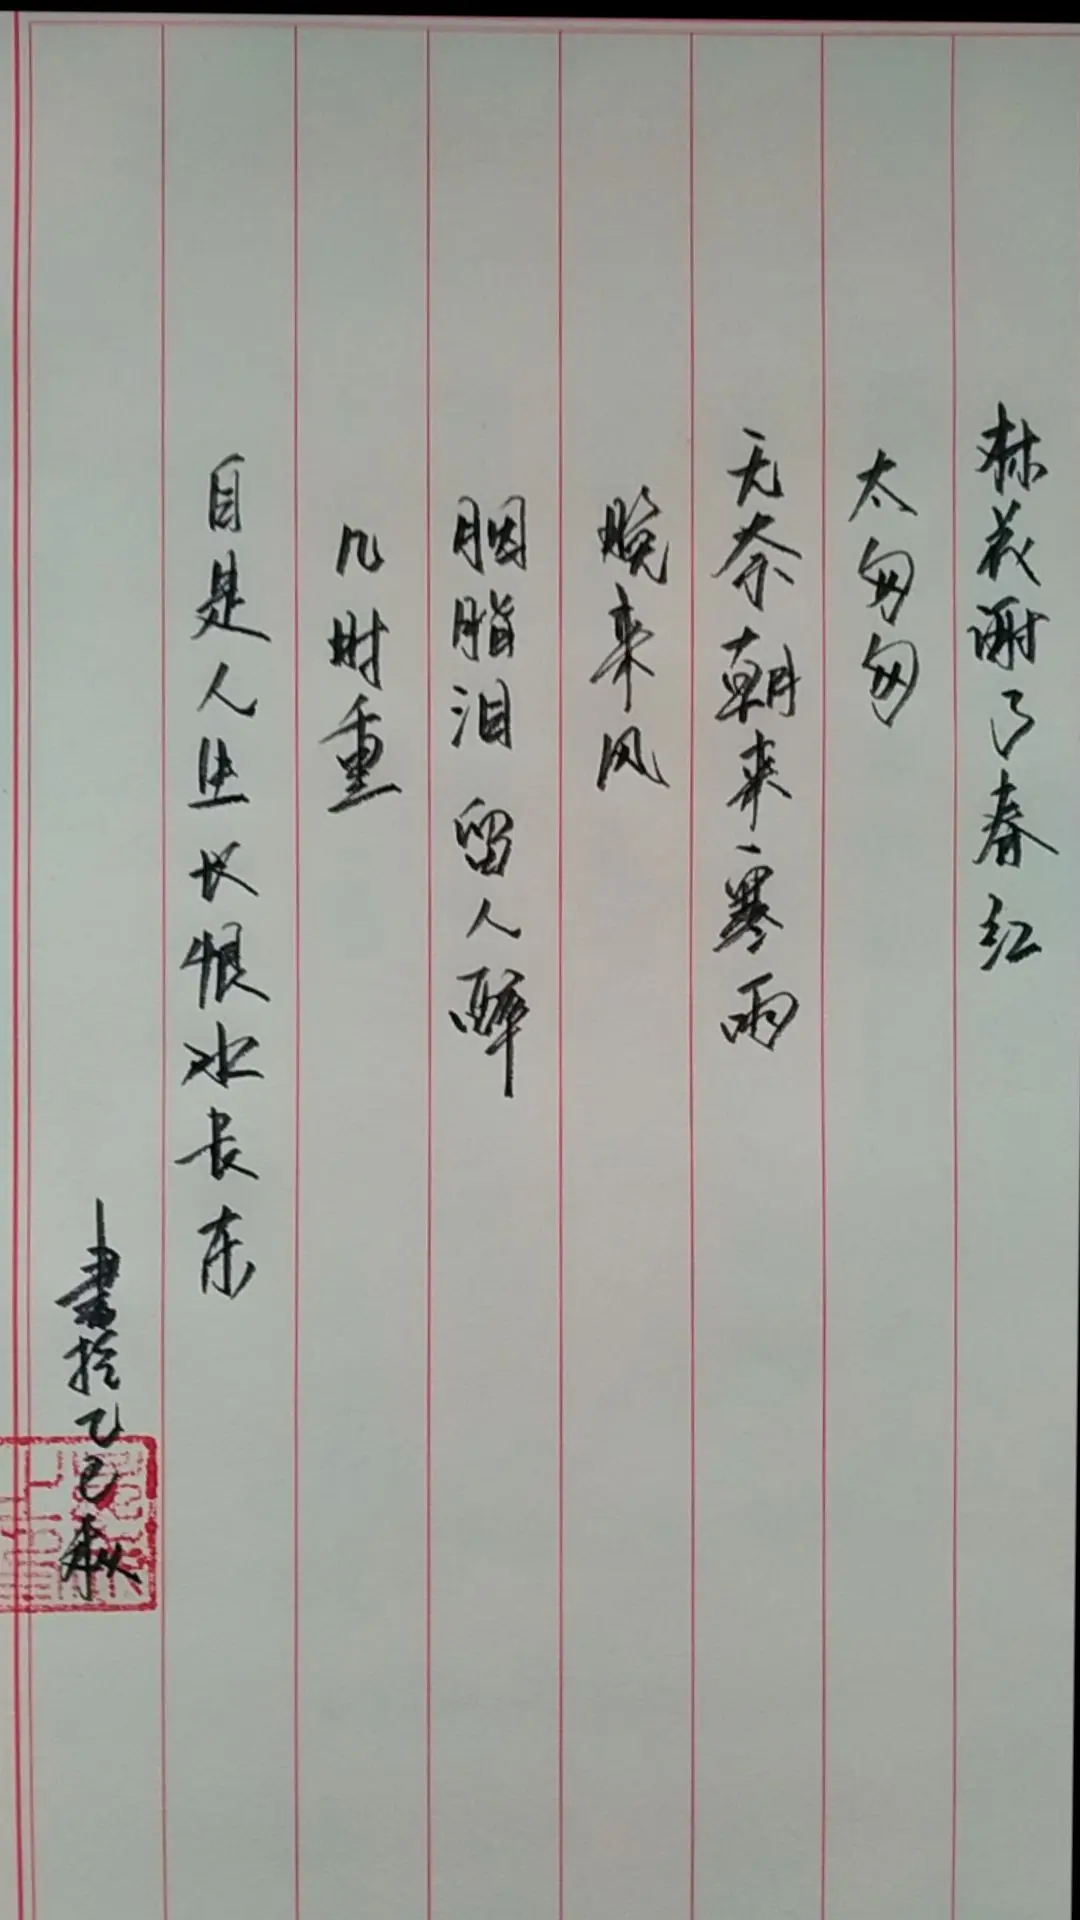 林花谢了春红
太匆匆
无奈朝来寒雨
晚来风
胭脂泪留人醉
几时重
自是人生长恨水长东
書於乙巳秋